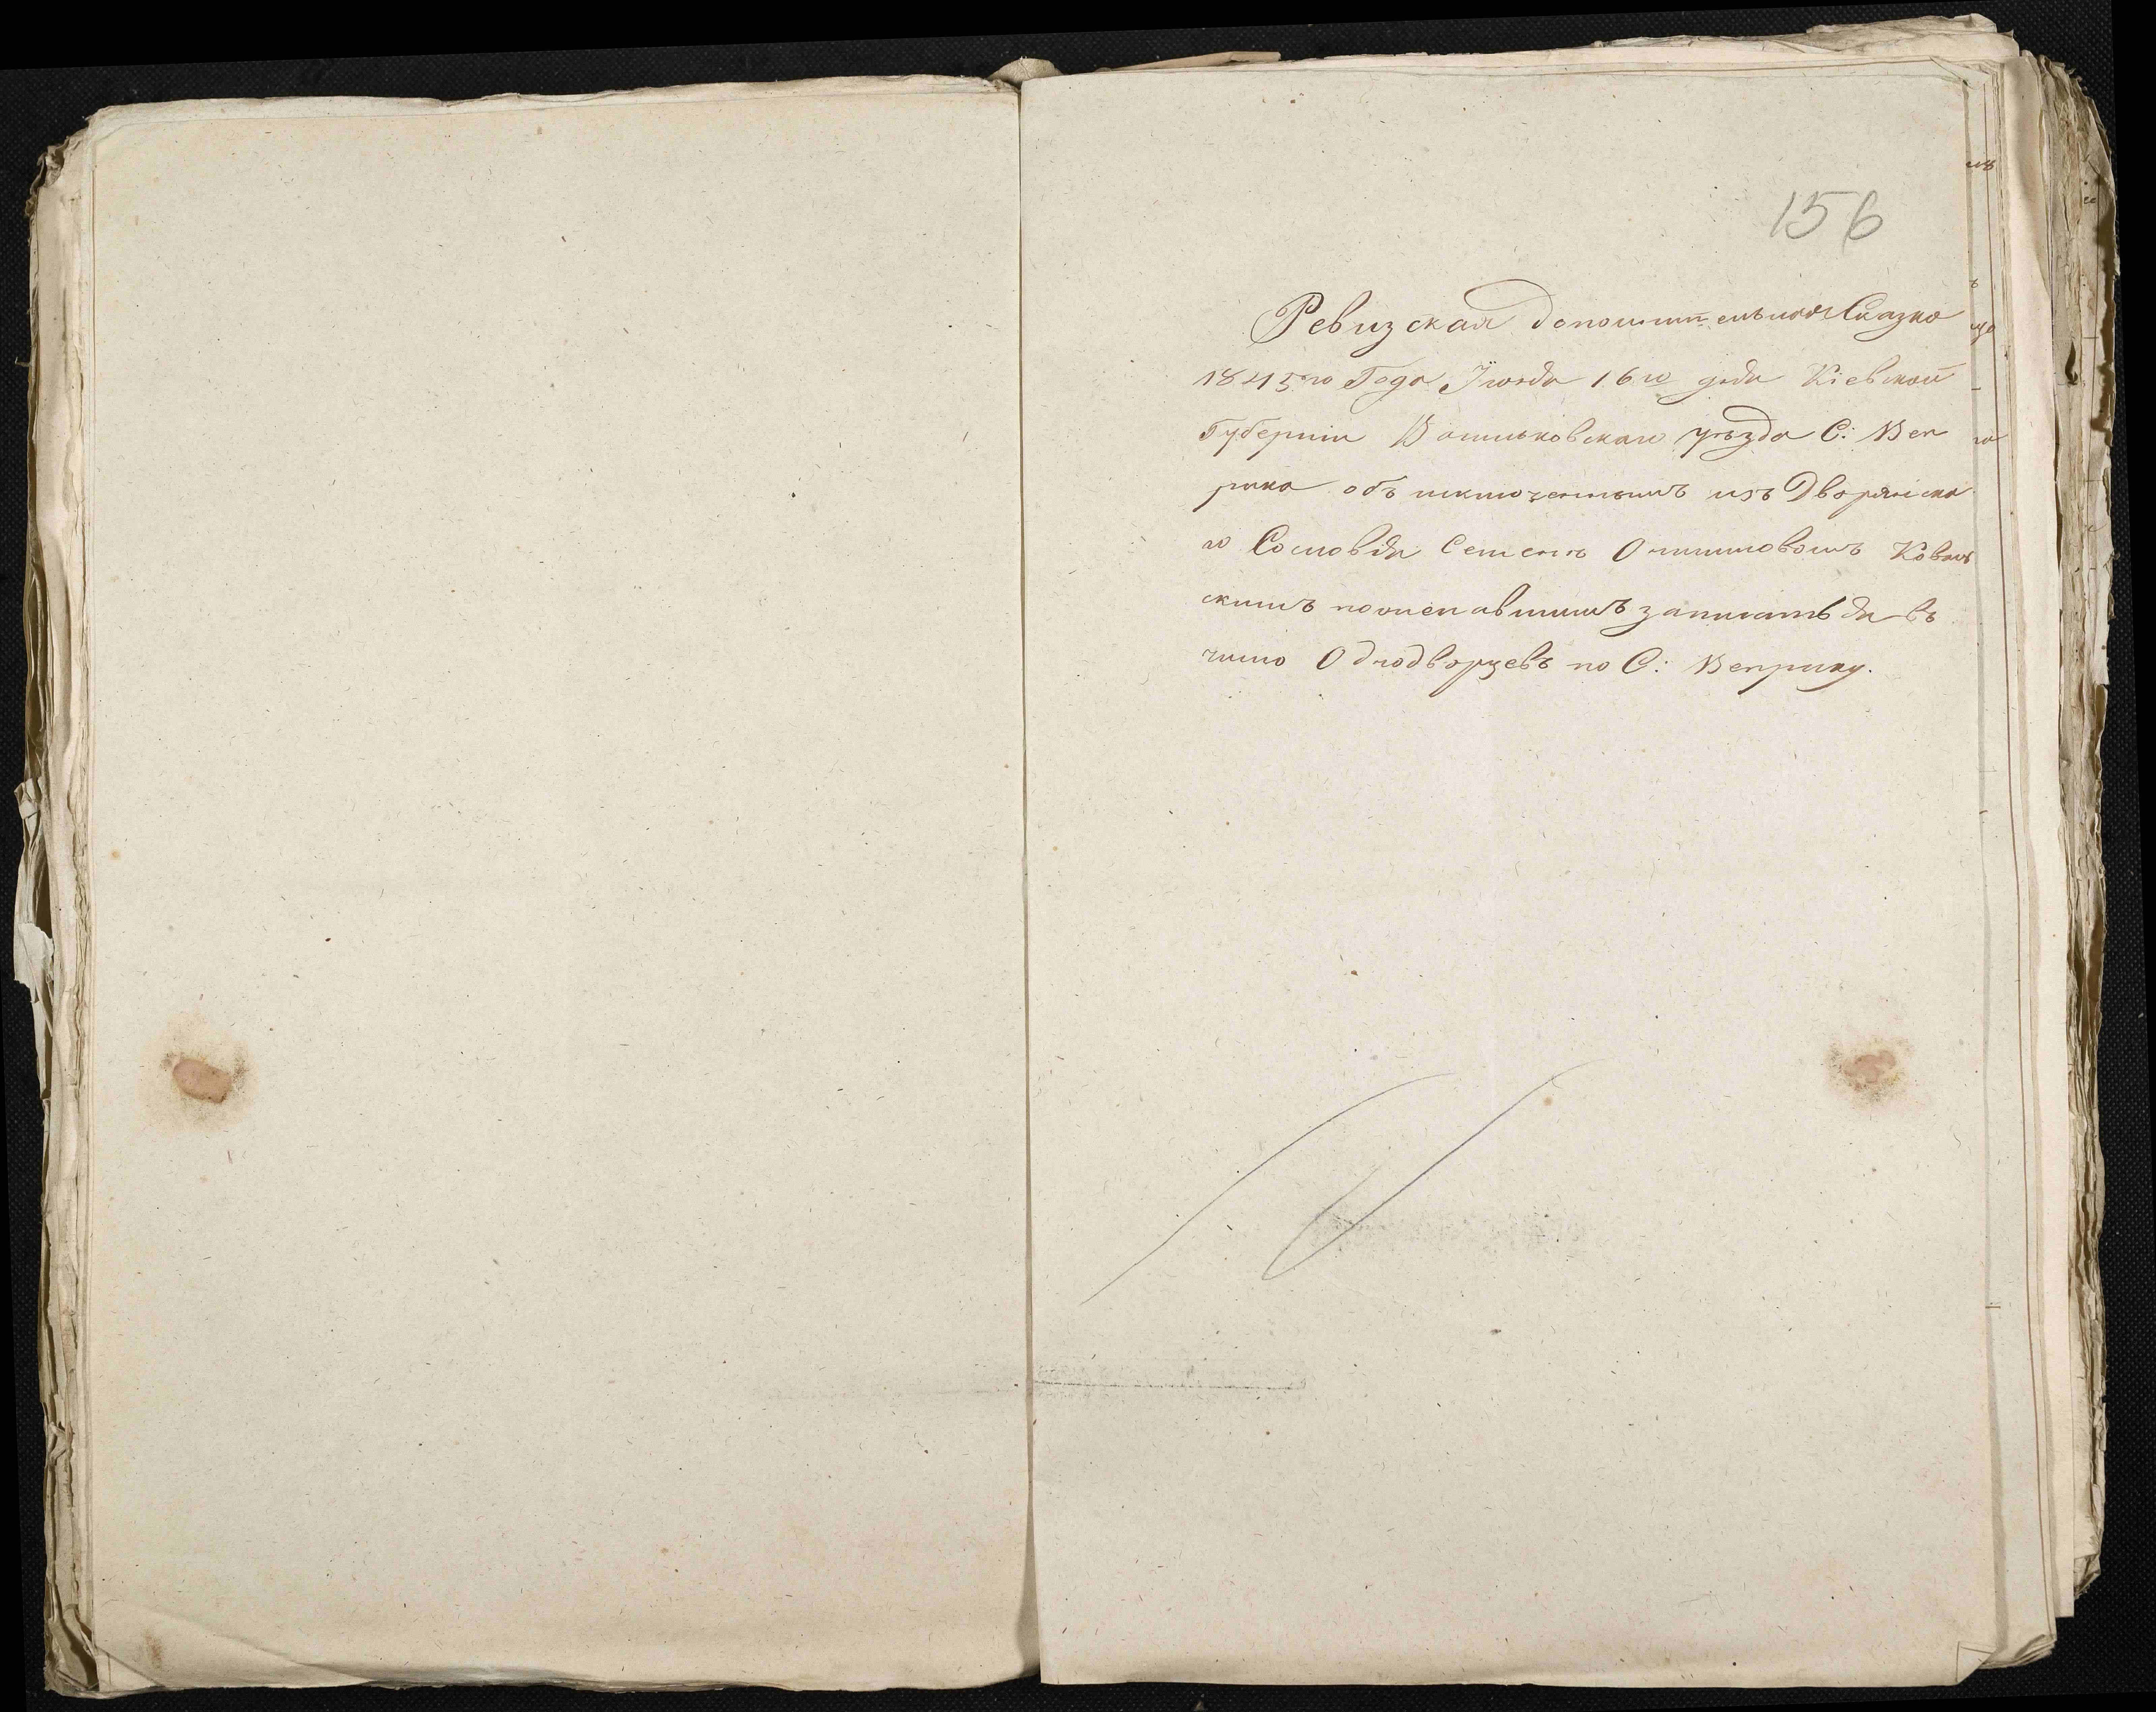 156
Ревизская дополнительная Сказка
1845го Года Июля 16го дня Кіевской
Губерніи Васильковскаго уѣзда С: Веп
рика объ исключенномъ изъ Дворянска
го Сословія Семенѣ Коваль
скимъ пожелавшимъ записаться въ
число Однодворцевъ по С: Веприку.